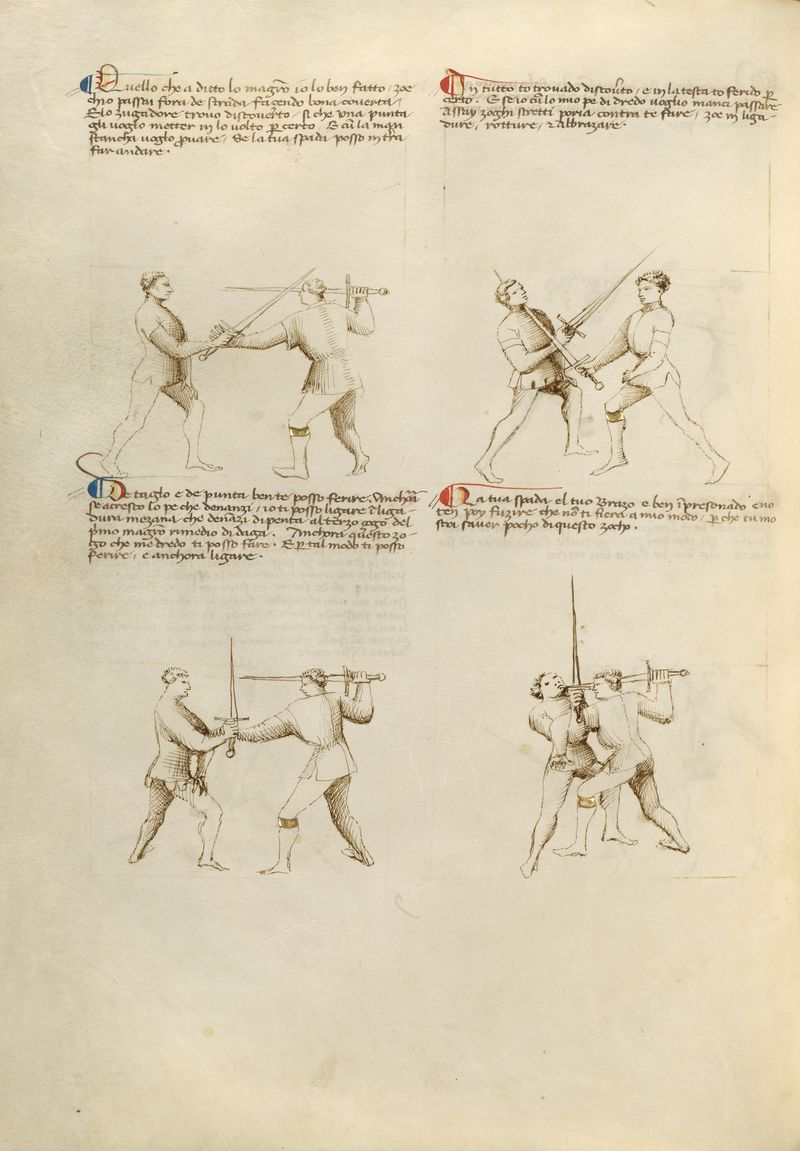 Quello che a ditto lo magro io lo ben fatto, zoe
ch'io passai fora de strada façendo bona coverta,
E lo zugadore trovo discoverto. si che una punta
gli voglio metter in lo volto p certo. E cu la man
stancha voglio pvare, Se la tua spada posso in tra
far andare.
In tutto to trovado discovto, e in la testa to ferido p
certo. E se io cu lo mio pe di dredo voglio inanci passare
Assay zoghi stretti poria contra te fare, zoe in liga-
dure, rotture, & Abbrazare.
De taglo e de punta ben te posso ferire. Anchora
se acresco lo pe che denanzi, io ti posso ligare d'liga-
dura mezana che denãzi dipenta al terzo zogo del
pmo magro rimedio di daga. Anchora questo zo-
go che me dredo ti posso fare. E p tal modo ti posso
ferire, e anchora ligare.
La tua spada el tuo Brazo e ben ipresonado e no
ten poy fuzire che no ti fiera a mio modo, p che tu mo
stra saver pocho di questo zocho.